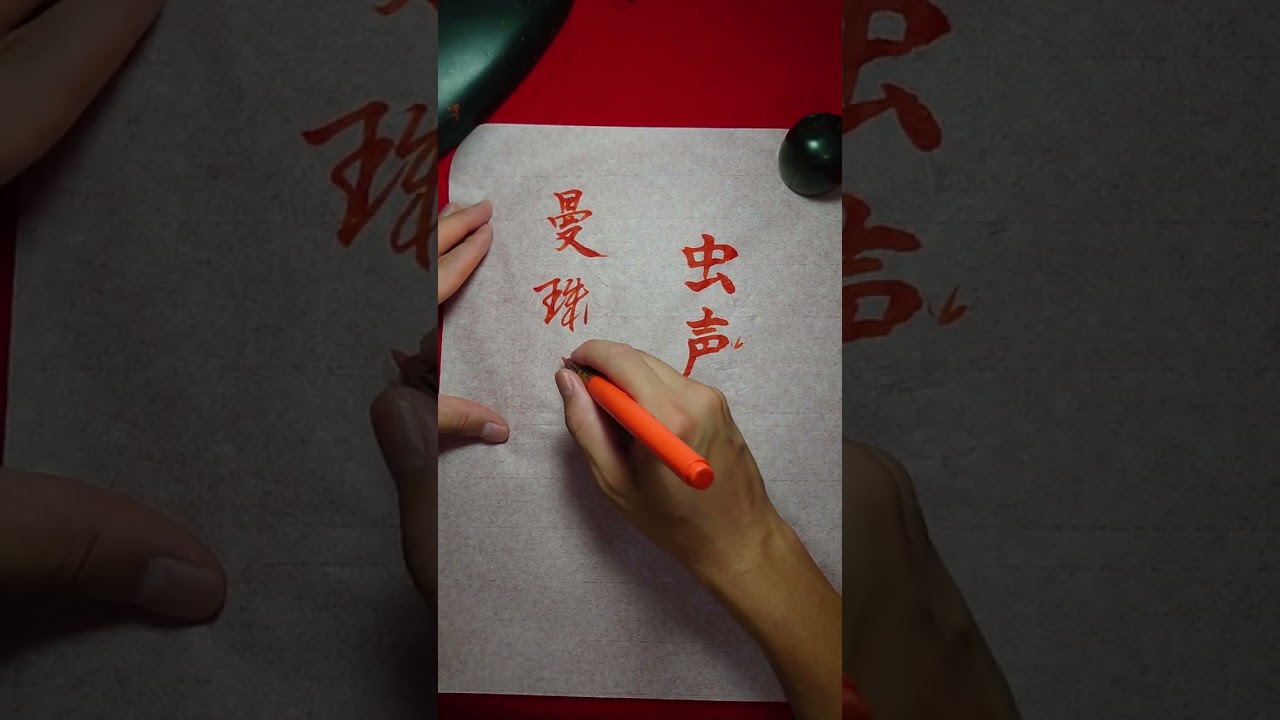 虫声
曼珠